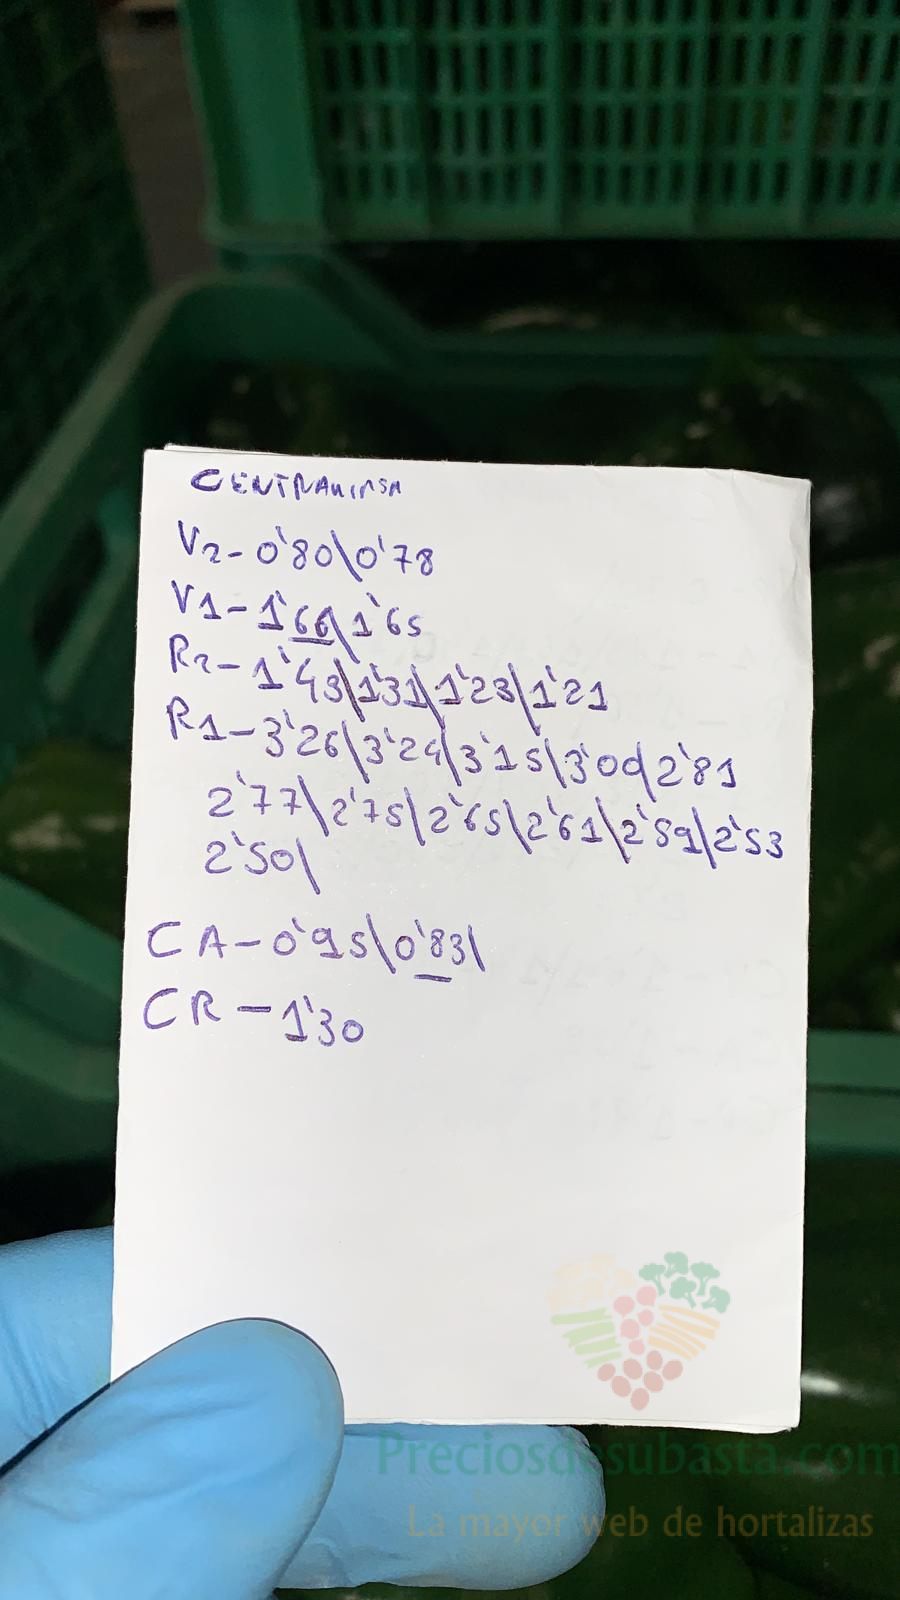 CENTRALIMSA
V2-0'80\0'78
V1-1'66\1'65
R2-1'43\1'31\1'23\1'21
R1-3'26\3'24\3'15\3'00\2'81
2'77\2'75\2'65\2'61\2'59\2'53
2'50\
CA-0'95\0'83\
CR-1'30
Preciosdesubasta.com
La mayor web de hortalizas